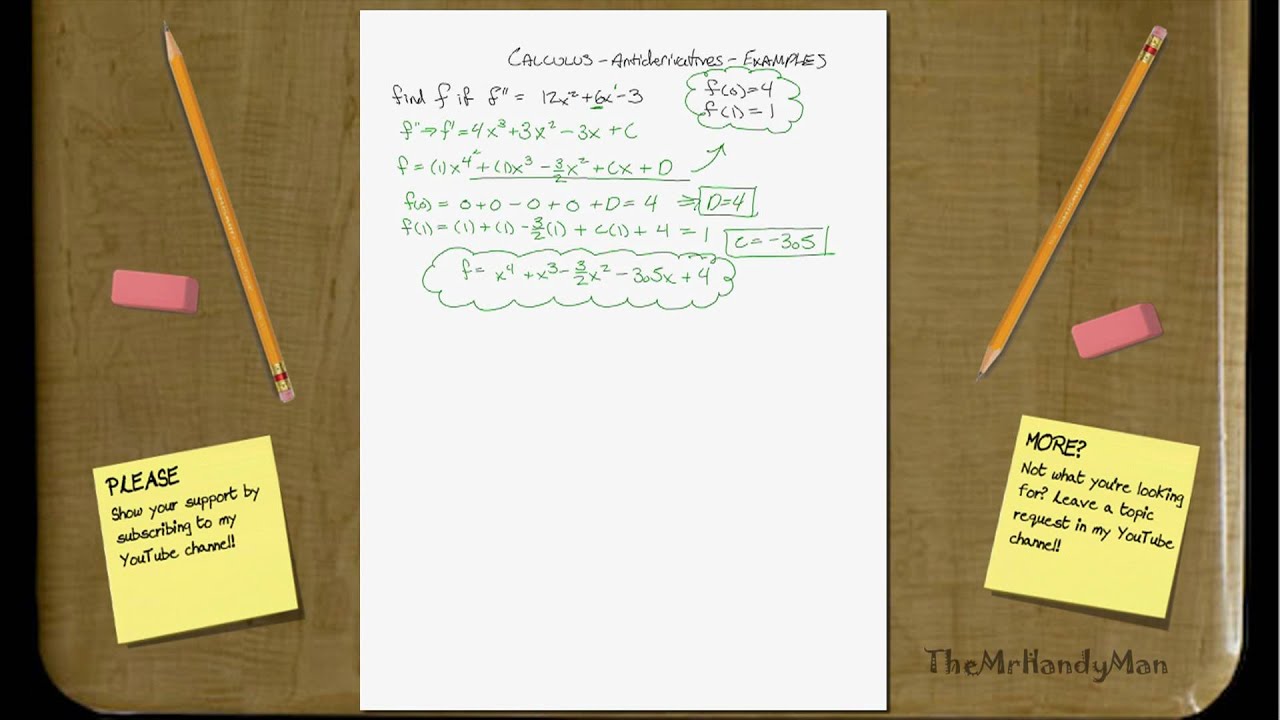 CALCULUS – Antiderivatives – EXAMPLES
find f if f" = 12x² + 6x¹ - 3
f(0) = 4
f(1) = 1
f" ⇒ f' = 4x³ + 3x² - 3x + C
f = (1)x⁴ + (1)x³ - 3/2x² + Cx + D
f(0) = 0 + 0 - 0 + 0 + D = 4 ⇒ D=4
f(1) = (1) + (1) - 3/2(1) + C(1) + 4 = 1
C = -3.5
f = x⁴ + x³ - 3/2x² - 3.5x + 4
PLEASE
Show your support by
subscribing to my
YouTube channel!
MORE?
Not what you're looking
for? Leave a topic
request in my YouTube
channel!
TheMrHandyMan